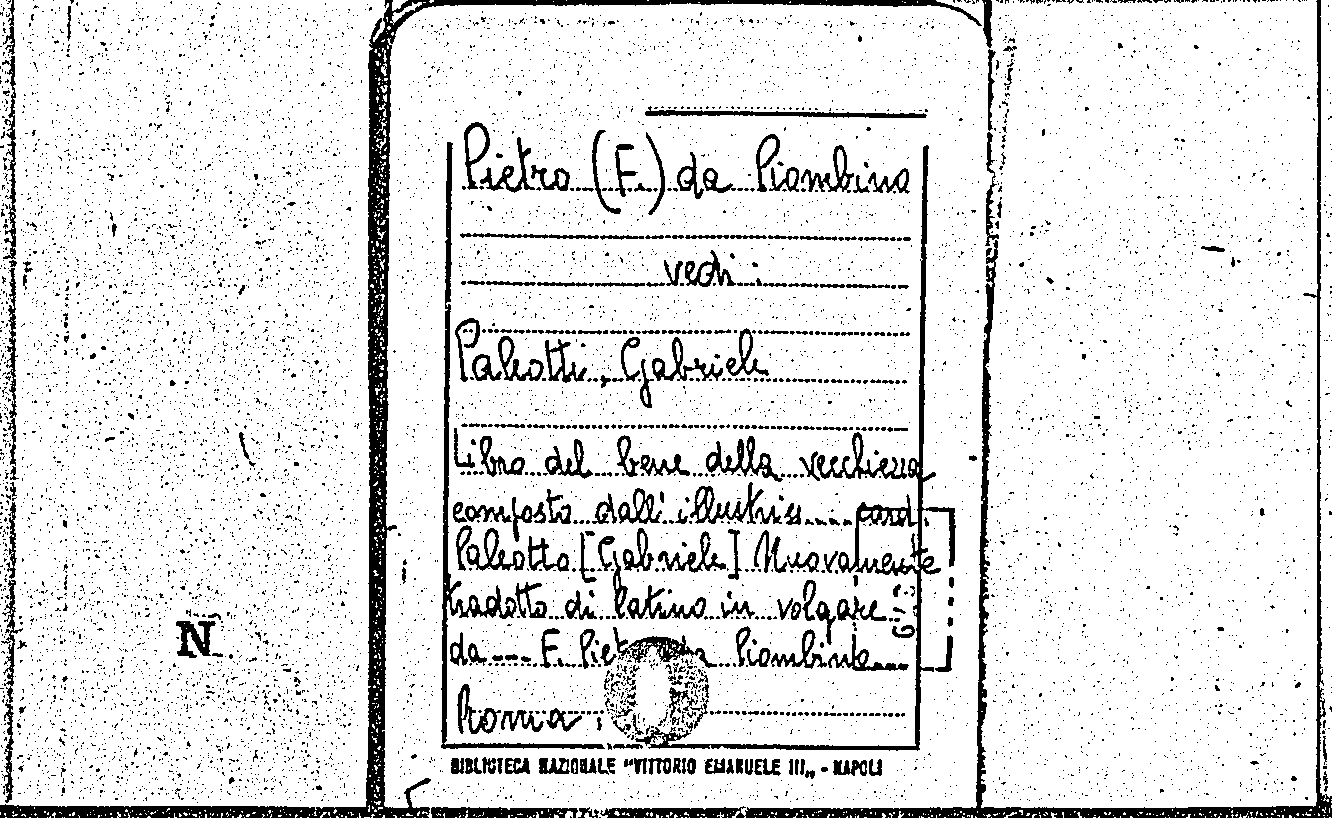 Pietro (F.) da Piombino
vedi:
Paleotti, Gabriele
Libro del bene della vecchiezza
composto dall' illustriss.... card.
Paleotto [Gabriele] Nuovamente
tradotto di latino in volgare
da --- F. Pietro da Piombino...
Roma.
N
BIBLIOTECA NAZIONALE "VITTORIO EMANUELE III„ - NAPOLI